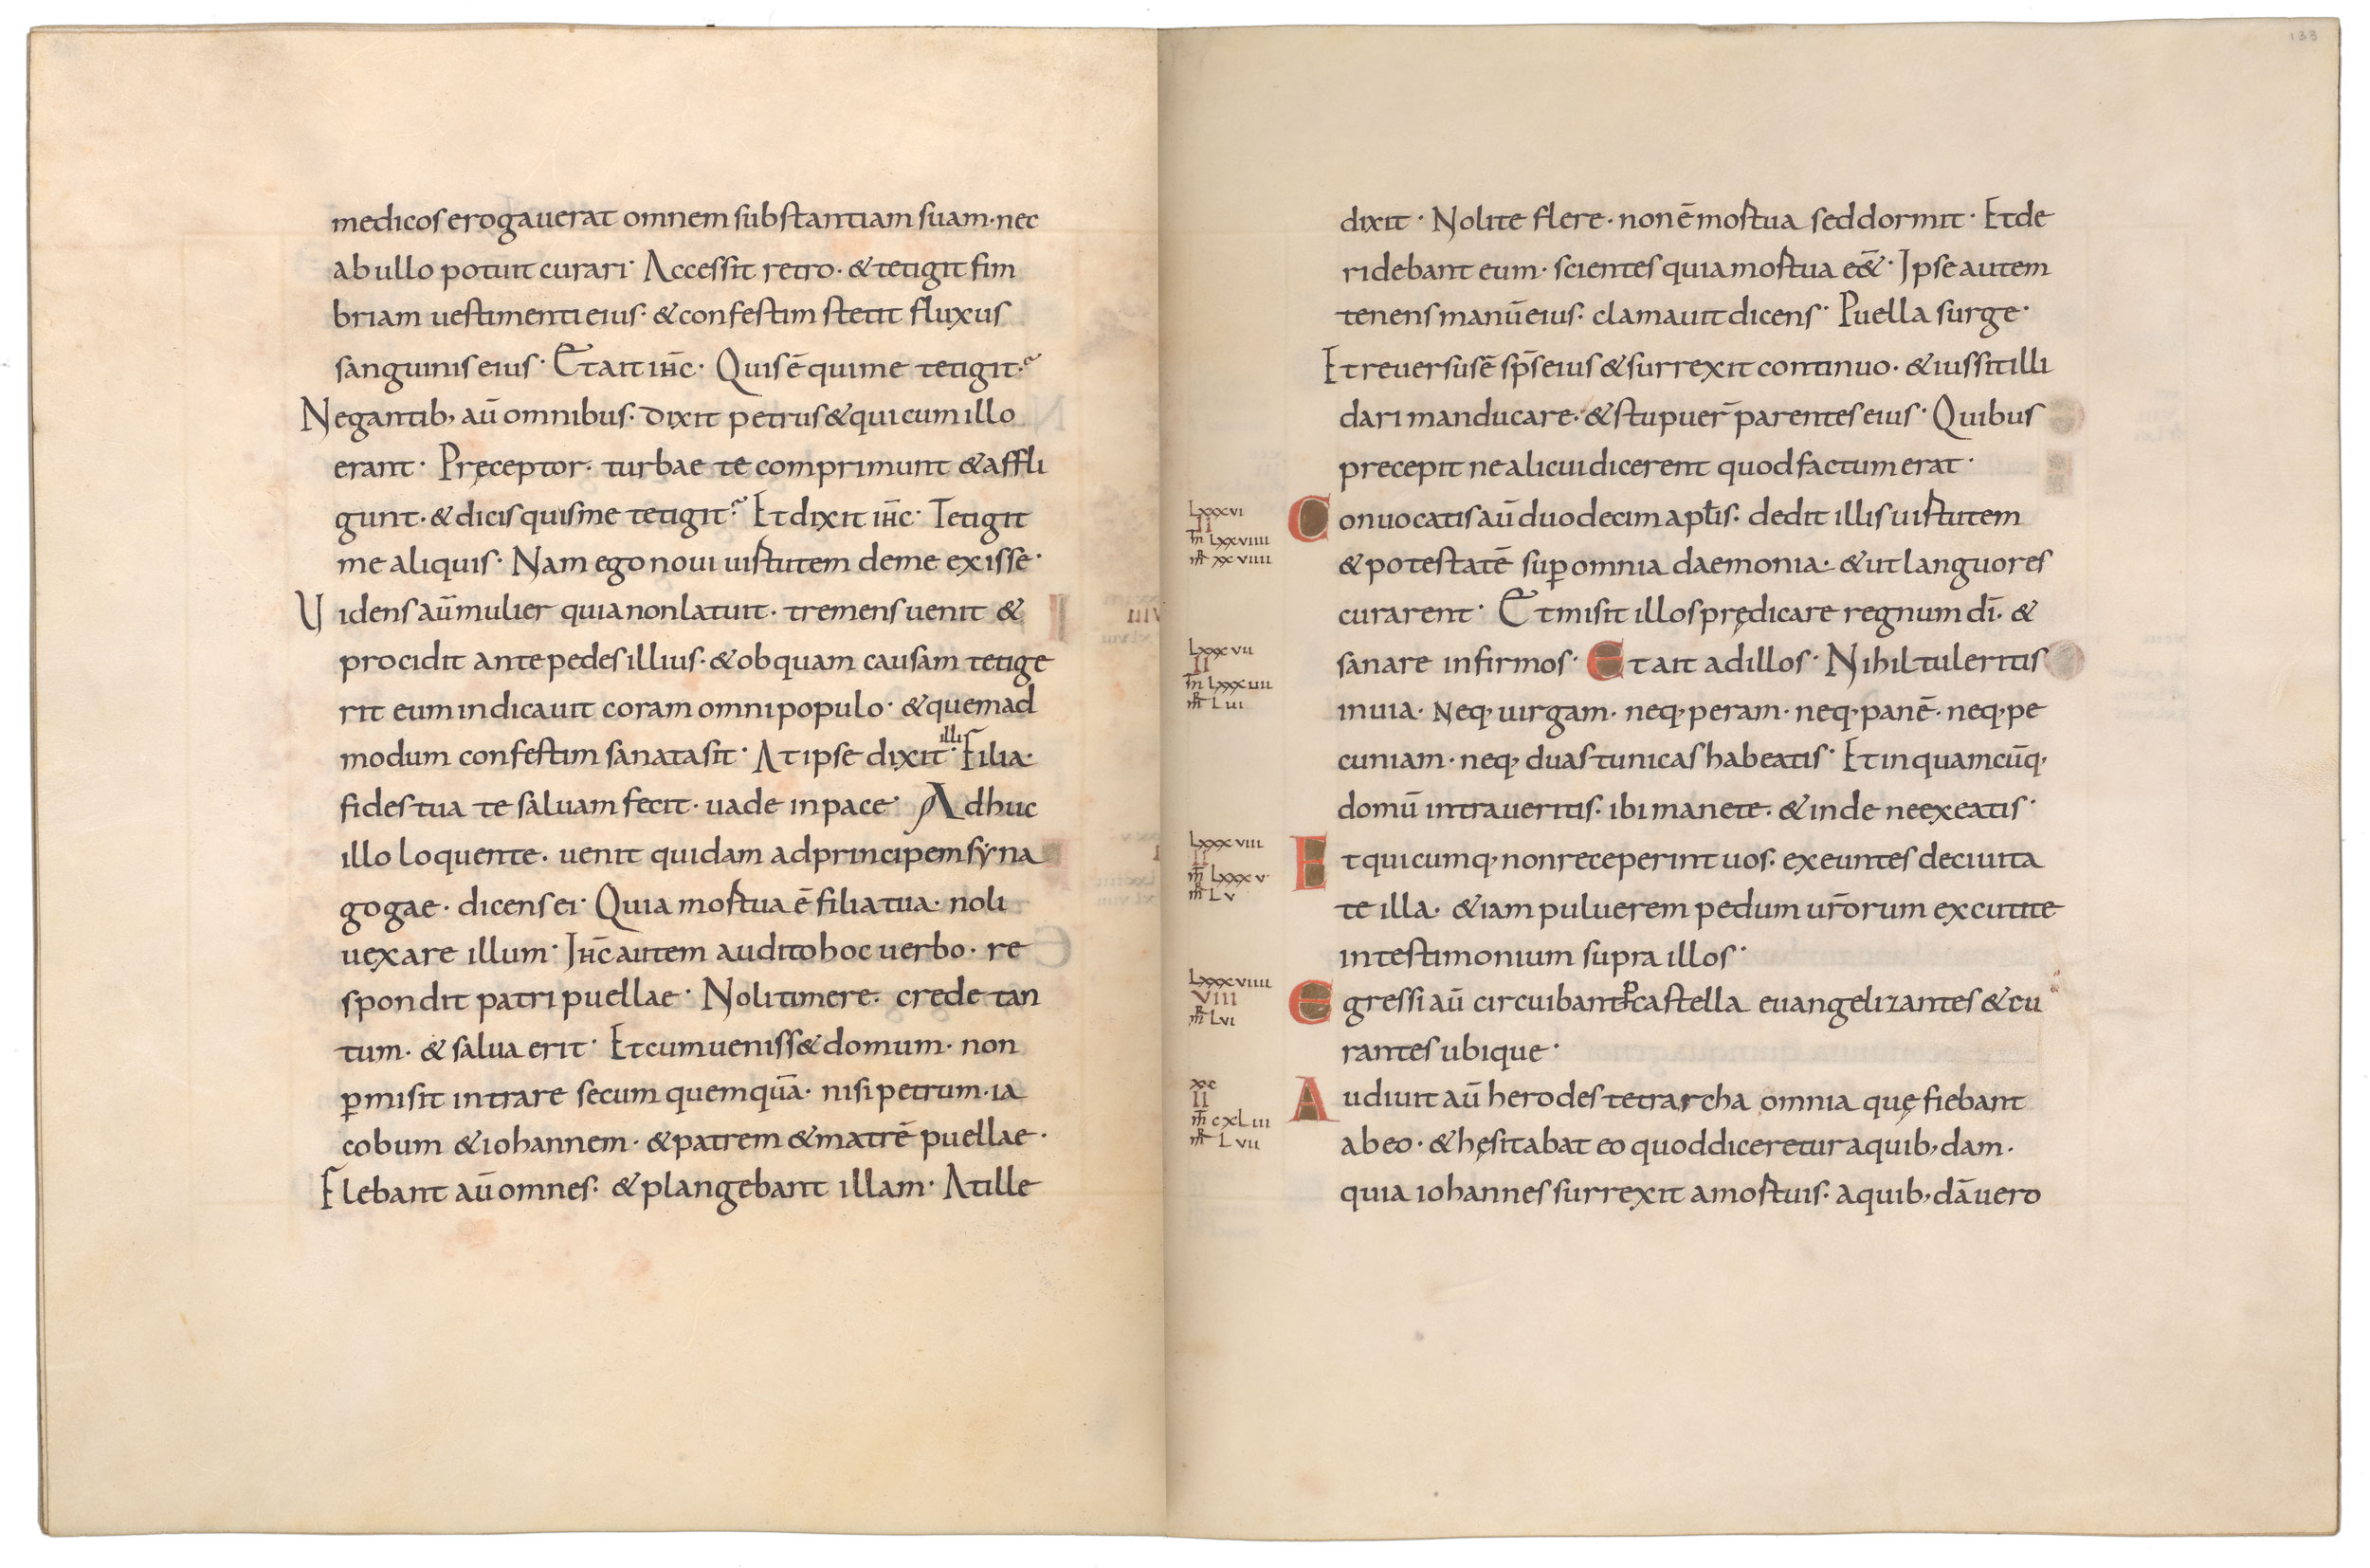 medicos erogauerat omnem substantiam suam· nec
ab ullo potuit curari· Accessit retro· & tetigit fim
briam uestimenti eius· & confestim stetit fluxus
sanguinis eius· Et ait ih̅c· Quis ē qui me tetigit?
Negantib; aū omnibus· dixit petrus & qui cum illo
erant· Pręceptor· turbae te comprimunt & affli
gunt· & dicis quis me tetigit? Et dixit ih̅c· Tetigit
me aliquis· Nam ego noui uirtutem de me exisse·
Uidens aū mulier quia non latuit· tremens uenit &
procidit ante pedes illius· & ob quam causam tetige
rit eum indicauit coram omni populo· & quemad
modum confestim sanata sit· At ipse dixit illi· Filia·
fides tua te saluam fecit· uade in pace· Adhuc
illo loquente· uenit quidam ad principem syna
gogae· dicens ei· Quia mortua ē filia tua· noli
uexare illum· Ih̅c autem audito hoc uerbo· re
spondit patri puellae· Noli timere· crede tan
tum· & salua erit· Et cum ueniss& domum· non
p̲misit intrare secum quemquā· nisi petrum· ia
cobum & iohannem· & patrem & matrē puellae·
Flebant aū omnes· & plangebant illam· At ille
133
dixit· Nolite flere· non ē mortua sed dormit· Et de
ridebant eum· scientes quia mortua eē&· Ipse autem
tenens manū eius· clamauit dicens· Puella surge·
Et reuersus ē sp̅s eius & surrexit continuo· & iussit illi
dari manducare· & stupuer̅ parentes eius· Quibus
precepit ne alicui dicerent quod factum erat·
LXXXVI
II
m̅ LXXVIIII
mr̅ XXVIIII
Conuocatis aū duodecim apt̅is· dedit illis uirtutem
& potestatē sup̲ omnia daemonia· & ut languores
curarent· Et misit illos prędicare regnum dī· &
LXXXVII
II
m̅ LXXXIIII
mr̅ LIII
sanare infirmos· Et ait ad illos· Nihil tuleritis
in uia· Neq; uirgam· neq; peram· neq; panē· neq; pe
cuniam· neq; duas tunicas habeatis· Et in quamcūq;
domū intraueritis· ibi manete· & inde ne exeatis·
LXXXVIII
II
m̅ LXXXV
mr̅ LV
Et quicumq; non receperint uos· exeuntes de ciuita
te illa· & iam puluerem pedum ur̅orum excutite
in testimonium supra illos·
LXXXVIIII
VIII
mr̅ LVI
Egressi aū circuibant p̲ castella euangelizantes & cu
rantes ubique·
XC
II
m̅ CXLIII
mr̅ LVII
Audiuit aū herodes tetrarcha omnia quę fiebant
ab eo· & hęsitabat eo quod diceretur a quib; dam·
quia iohannes surrexit a mortuis· a quib; dā uero